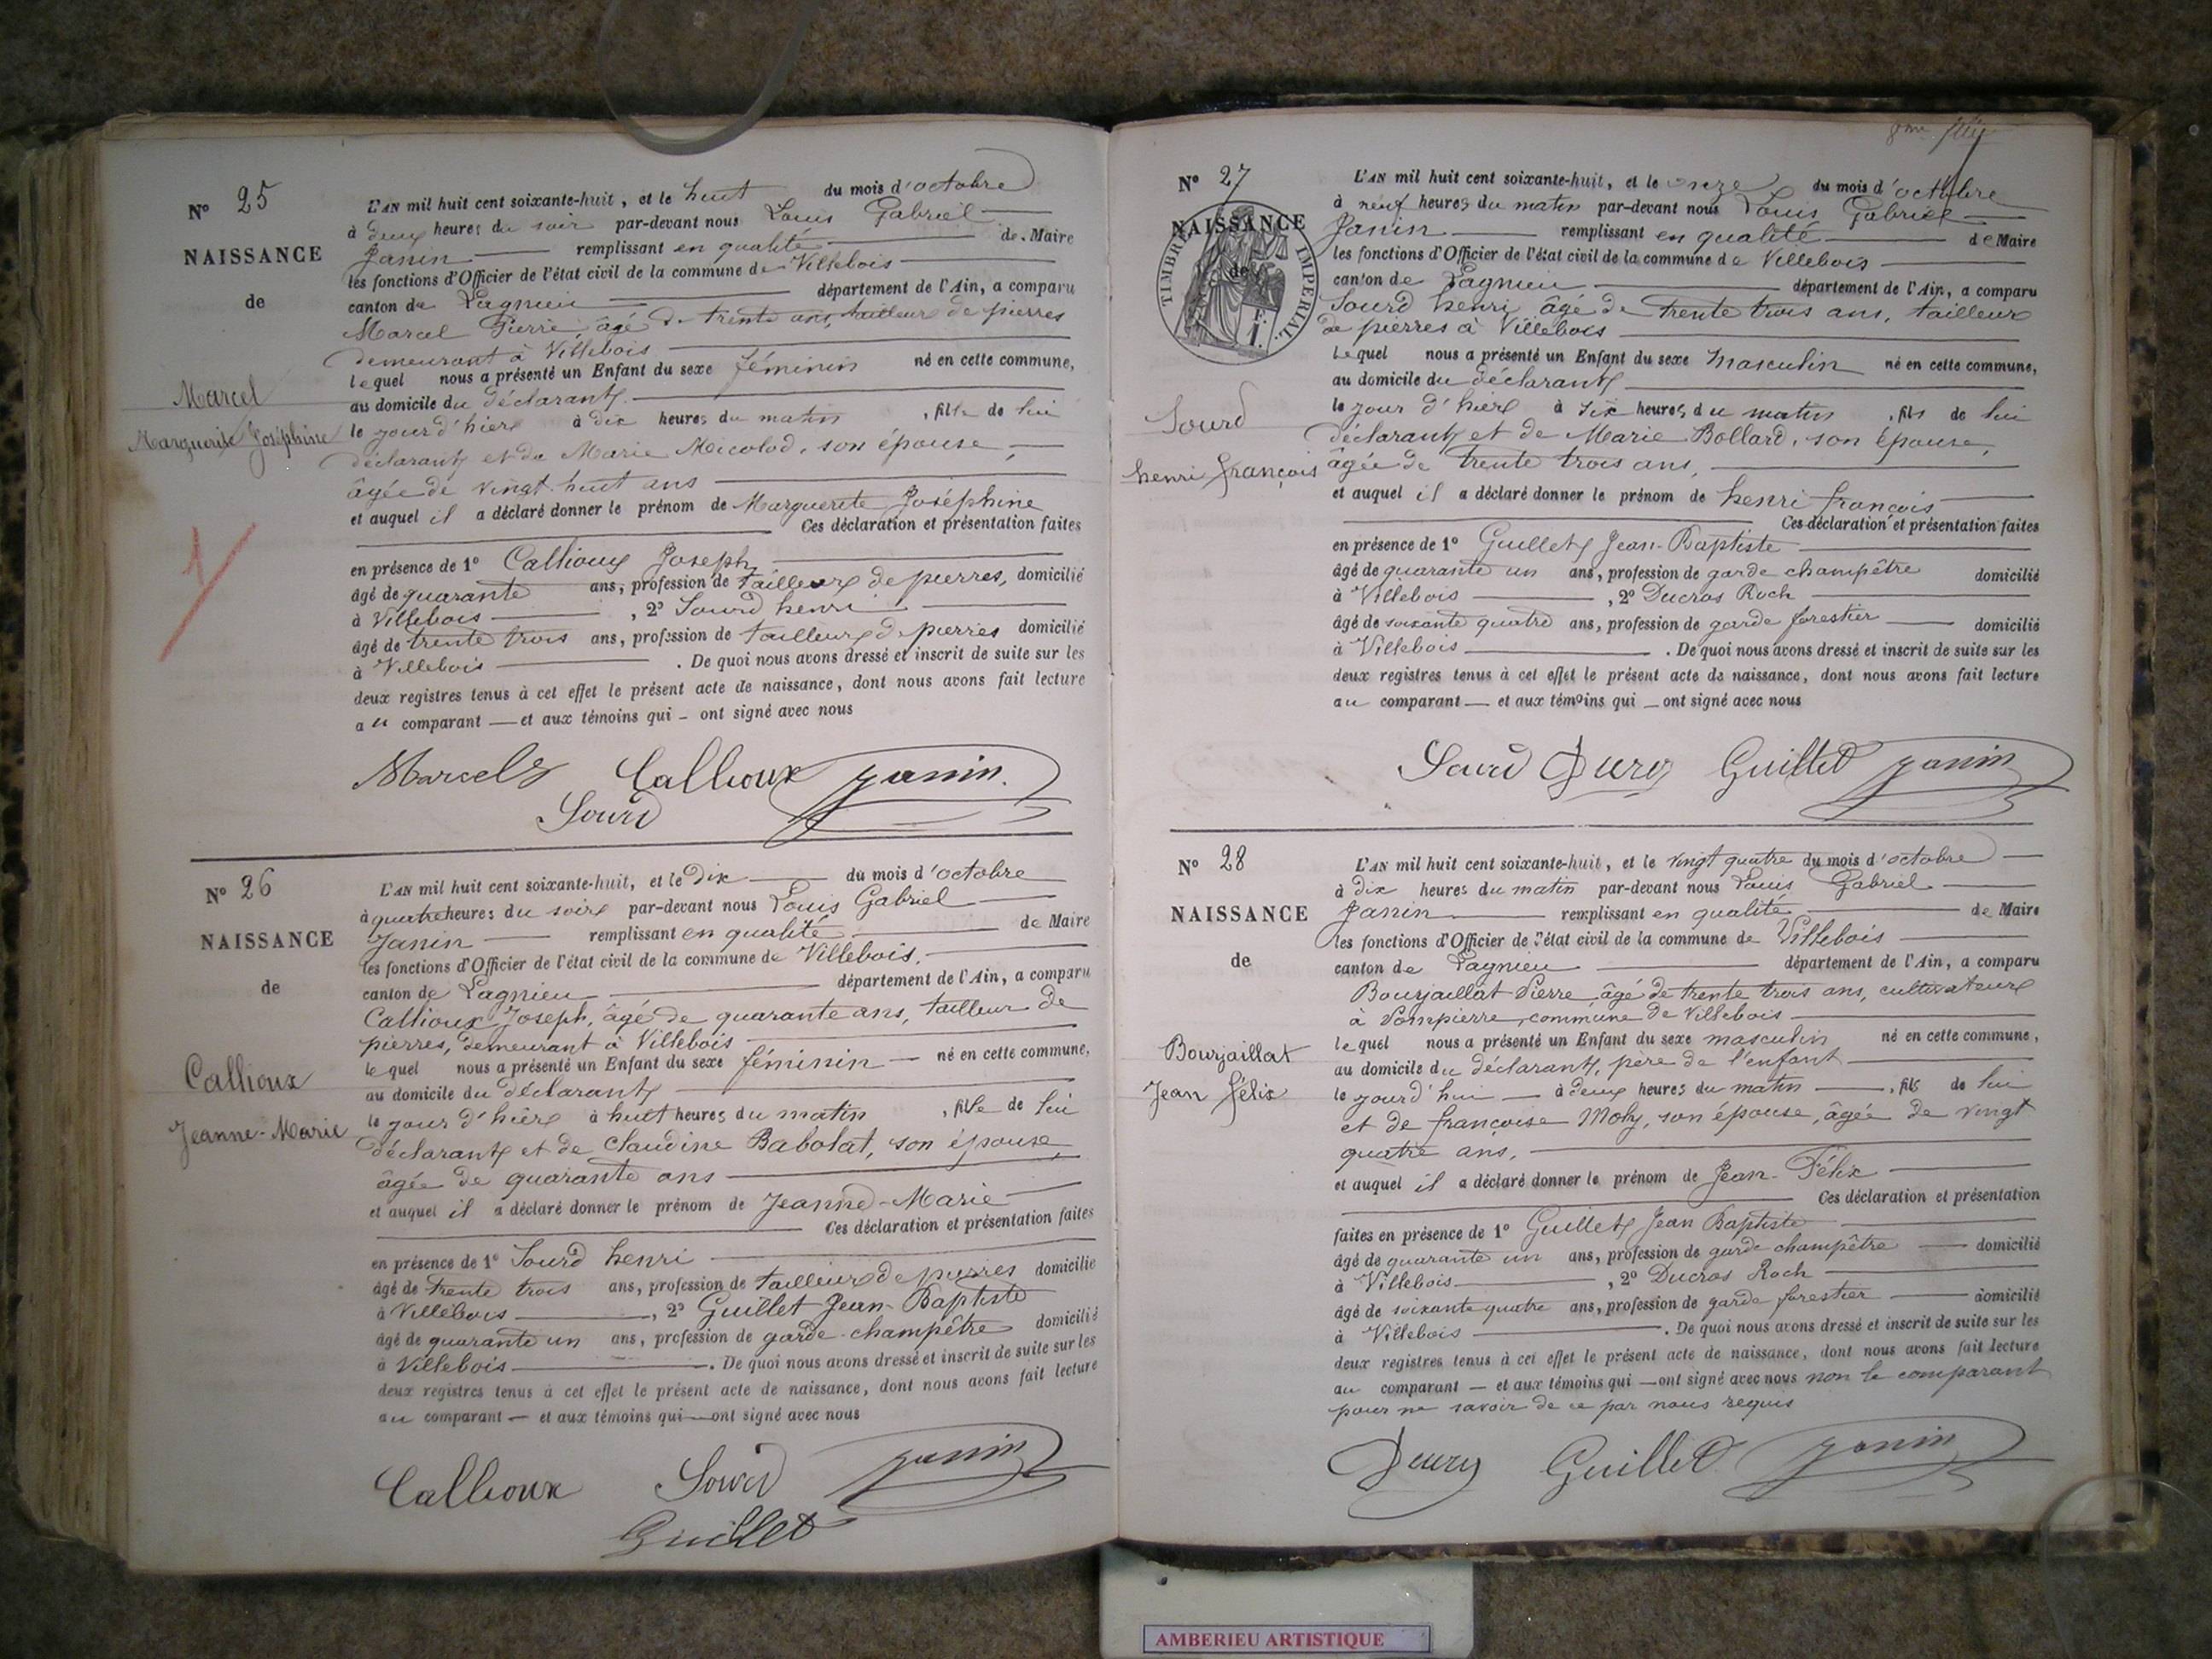 N° 25
NAISSANCE
de
Marcel
Marguerite Joséphine
1
L'AN mil huit cent soixante-huit, et le huit du mois d'octobre
à deux heures du soir par-devant nous Louis Gabriel
Janin remplissant en qualité de Maire
les fonctions d'Officier de l'état civil de la commune de Villebois
canton de Lagnieu département de l'Ain, a comparu
Marcel Pierre, âgé de trente ans, tailleur de pierres
demeurant à Villebois
lequel nous a présenté un Enfant du sexe féminin né en cette commune,
au domicile du déclarant
le jour d'hier à dix heures du matin, fille de lui
déclarant et de Marie Micolod, son épouse,
âgée de vingt huit ans
et auquel il a déclaré donner le prénom de Marguerite Joséphine
Ces déclaration et présentation faites
en présence de 1° Callioux Joseph
âgé de quarante ans, profession de tailleur de pierres, domicilié
à Villebois, 2° Sourd henri
âgé de trente trois ans, profession de tailleur de pierres domicilié
à Villebois. De quoi nous avons dressé et inscrit de suite sur les
deux registres tenus à cet effet le présent acte de naissance, dont nous avons fait lecture
au comparant et aux témoins qui ont signé avec nous
Marcel Callioux Janin
Sourd
N° 26
NAISSANCE
de
Callioux
Jeanne-Marie
L'AN mil huit cent soixante-huit, et le dix du mois d'octobre
à quatre heures du soir par-devant nous Louis Gabriel
Janin remplissant en qualité de Maire
les fonctions d'Officier de l'état civil de la commune de Villebois.
canton de Lagnieu département de l'Ain, a comparu
Callioux Joseph, âgé de quarante ans, tailleur de
pierres, demeurant à Villebois
lequel nous a présenté un Enfant du sexe féminin né en cette commune,
au domicile du déclarant
le jour d'hier à huit heures du matin, fille de lui
déclarant et de Claudine Babolat, son épouse,
âgée de quarante ans
et auquel il a déclaré donner le prénom de Jeanne-Marie
Ces déclaration et présentation faites
en présence de 1° Sourd henri
âgé de trente trois ans, profession de tailleur de pierres domicilié
à Villebois, 2° Guillet Jean-Baptiste
âgé de quarante un ans, profession de garde-champêtre domicilié
à Villebois. De quoi nous avons dressé et inscrit de suite sur les
deux registres tenus à cet effet le présent acte de naissance, dont nous avons fait lecture
au comparant et aux témoins qui ont signé avec nous
Callioux Sourd Janin
Guillet
N° 27
NAISSANCE
de
TIMBRE IMPERIAL
Sourd
henri françois
L'AN mil huit cent soixante-huit, et le onze du mois d'octobre
à neuf heures du matin par-devant nous Louis Gabriel
Janin remplissant en qualité de Maire
les fonctions d'Officier de l'état civil de la commune de Villebois
canton de Lagnieu département de l'Ain, a comparu
Sourd henri âgé de trente trois ans, tailleur
de pierres à Villebois
lequel nous a présenté un Enfant du sexe masculin né en cette commune,
au domicile du déclarant
le jour d'hier à six heures du matin, fils de lui
déclarant et de Marie Bollard, son épouse,
âgée de trente trois ans,
et auquel il a déclaré donner le prénom de henri françois
Ces déclaration et présentation faites
en présence de 1° Guillet Jean-Baptiste
âgé de quarante un ans, profession de garde champêtre domicilié
à Villebois, 2° Ducros Roch
âgé de soixante quatre ans, profession de garde forestier domicilié
à Villebois. De quoi nous avons dressé et inscrit de suite sur les
deux registres tenus à cet effet le présent acte de naissance, dont nous avons fait lecture
au comparant et aux témoins qui ont signé avec nous
Sourd Guillet Janin
N° 28
NAISSANCE
de
Bourjaillat
Jean félix
L'AN mil huit cent soixante-huit, et le vingt quatre du mois d'octobre
à dix heures du matin par-devant nous Louis Gabriel
Janin remplissant en qualité de Maire
les fonctions d'Officier de l'état civil de la commune de Villebois
canton de Lagnieu département de l'Ain, a comparu
Bourjaillat Pierre, âgé de trente trois ans, cultivateur
à Dompierre, commune de Villebois
lequel nous a présenté un Enfant du sexe masculin né en cette commune,
au domicile du déclarant, père de l'enfant
le jourd'hui à deux heures du matin, fils de lui
et de françoise Moly, son épouse, âgée de vingt
quatre ans,
et auquel il a déclaré donner le prénom de Jean-Félix
Ces déclaration et présentation
faites en présence de 1° Guillet Jean Baptiste
âgé de quarante un ans, profession de garde champêtre domicilié
à Villebois, 2° Ducros Roch
âgé de soixante quatre ans, profession de garde forestier domicilié
à Villebois. De quoi nous avons dressé et inscrit de suite sur les
deux registres tenus à cet effet le présent acte de naissance, dont nous avons fait lecture
au comparant et aux témoins qui ont signé avec nous non le comparant
pour ne savoir de ce par nous requis
Guillet Janin
AMBERIEU ARTISTIQUE